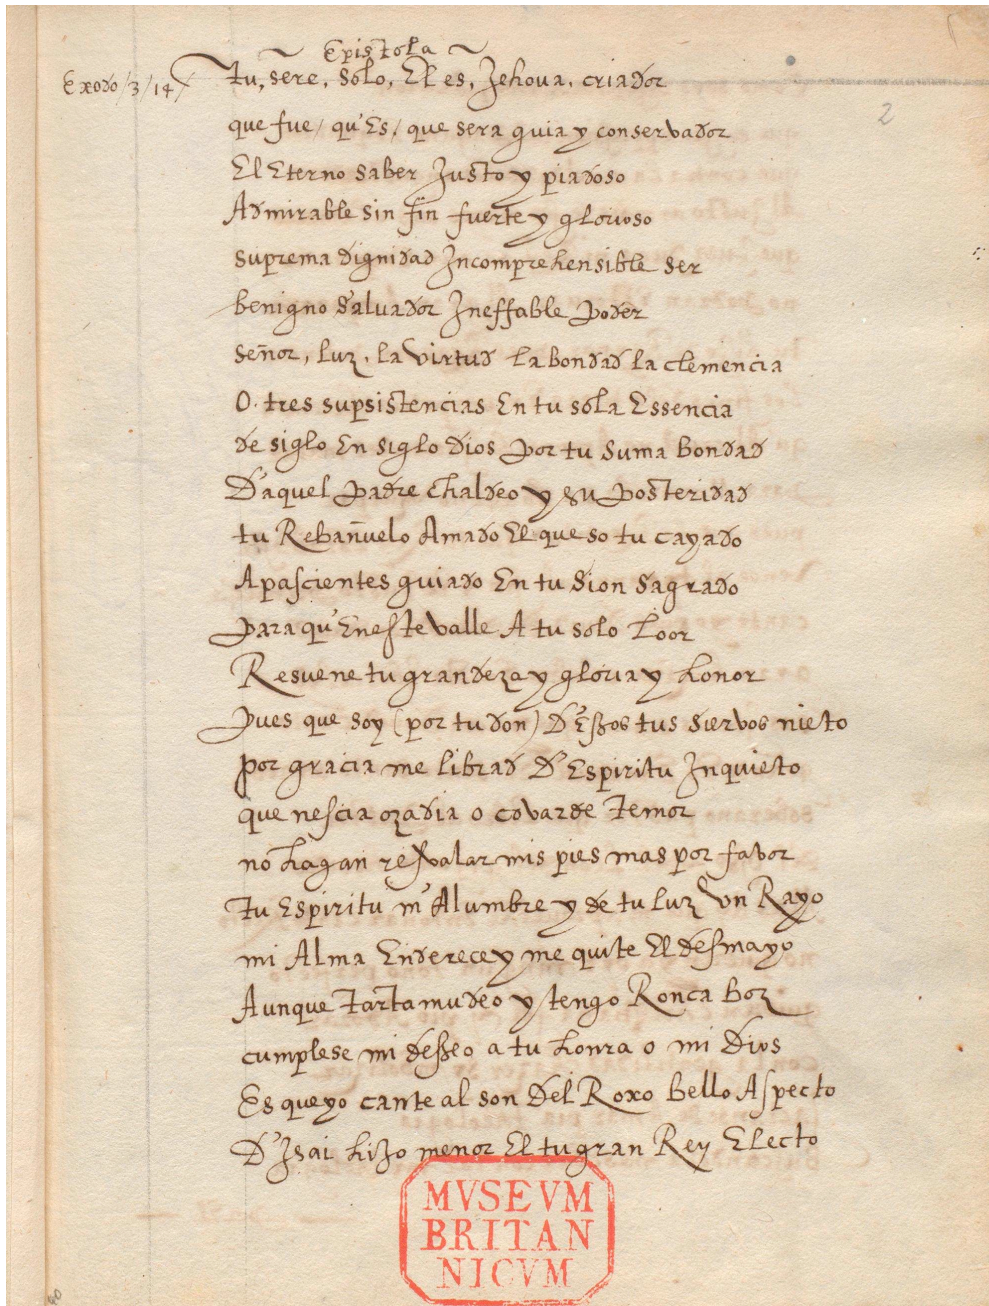 ~ Epistola ~
Exodo/3/14/ tu, sere, solo, El es, Jehova, criador
2
que fue/ qu'Es/ que sera guia y conservador
El Eterno saber Justo y piadoso
Admirable sin fin fuerte y glorioso
suprema dignidad Incomprehensible ser
benigno salvador Ineffable poder
señor, luz, la virtud la bondad la clemencia
O. tres supsistencias En tu sola Essencia
de siglo En siglo dios por tu suma bondad
D'aquel padre chaldeo y su posteridad
tu Rebañuelo Amado El que so tu cayado
Apascientes guiado En tu Sion sagrado
para qu'Eneste valle A tu solo Loor
Resuene tu grandeza y gloria y honor
pues que soy (por tu don) D'Essos tus siervos nieto
por gracia me librad D'Espiritu Inquieto
que nescia ozadia o covarde temor
no hagan resvalar mis pies mas por favor
Tu Espiritu m'Alumbre y de tu luz vn Rayo
mi Alma Enderece y me quite El desmayo
Aunque tartamudeo y tengo Ronca boz
cumplese mi desseo a tu honra o mi Dios
Es que yo cante al son del Roxo bello Aspecto
D'Isai hijo menor El tu gran Rey Electo
MVSEVM
BRITAN
NICVM